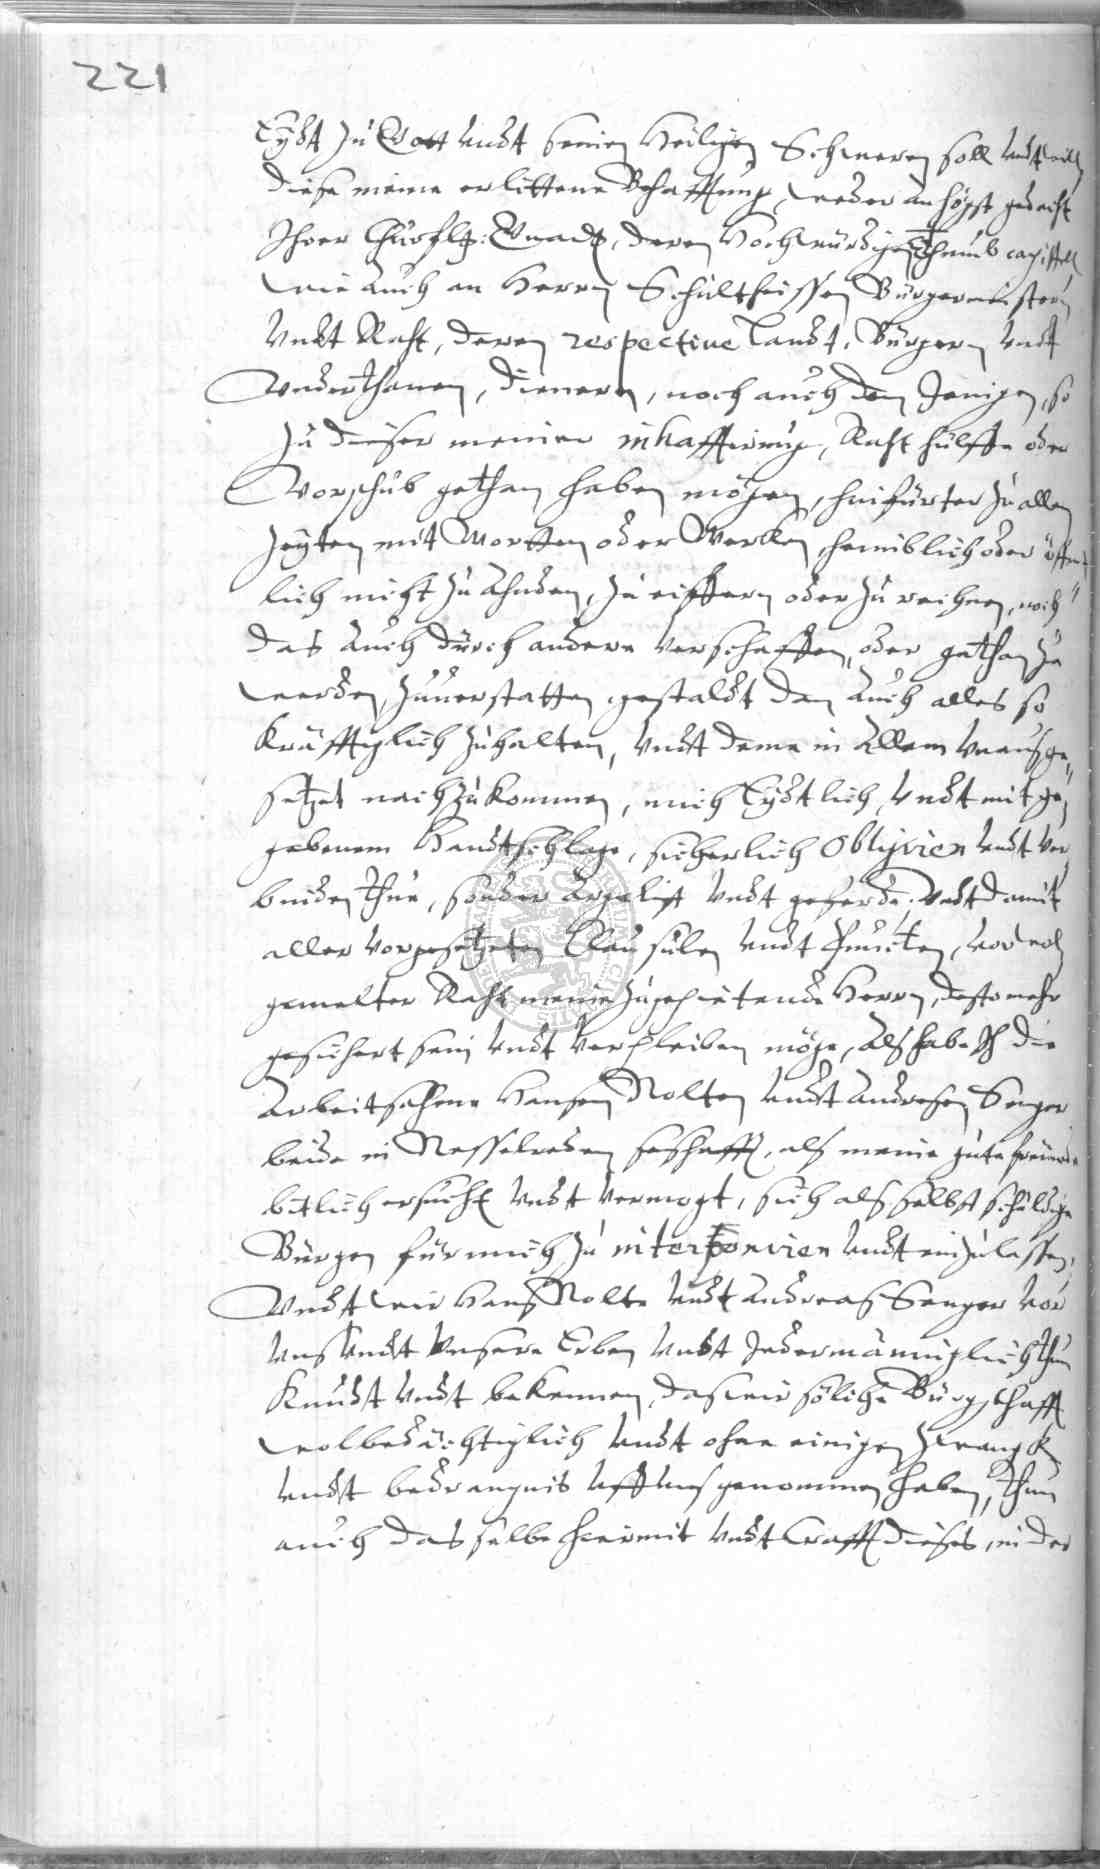 221
Eydt zu Gott undt seinen Heiligen Schweren soll undt will
diese meine erlittene Behafftung, weder an högst gedacht
Ihrer Churflg: Gnadt, deren Hochwürdigen Thumb capittell
wie auch an Herrn Schultheissen Bürgermeistern
Undt Raht, deren respective Landt, Bürgern undt
Underthanen, Dienern, noch auch den Jenigen, so
zu dieser meiner inhafftirung, Raht hülffe oder
Vorschub gethan haben mögen, hinfürter zu allen
Zeyten mit Wortten oder Wercken, heimblich oder öffent
lich nicht zu Ahnden, zu eiffern oder zu rechnen, noch
das auch durch andere verschaffen, oder gethan zu
werden, zuverstatten, gestaldt dan auch alles so
Kräfftiglich zuhalten, undt deme in Allem unausge-
setzet nachzukommen, mich Eydtlich, undt mit ge-
gebenem Handtschlage, sicherlich Obligiren undt ver-
binden thue, sonder Argelist undt geferde. undt damit
aller vorgesetzeten Clausulen undt Puncten, vor wol
gemelter Raht meine zugepietende Herrn, desto mehr
gesichert sein undt verpleiben möge, als habe ich die
Arbeitsahme Hansen Nolten undt Andresen Senger
beide in Nesselreden seshafft, als meine gute freunde
bitlich ersucht undt vermogt, sich als selbst schuldige
Bürgen für mich zu interponiren undt einzulassen,
Undt wir Hans Nolte undt Andreas Senger vor
uns undt unsere Erben undt Jedermänniglich thun
Kundt undt bekennen, das wir solche Bürgschafft
wolbedächtiglich undt ohne einigen Zwangk
undt bedrangnis uff uns genommen haben, thun
auch dasselbe hiermit undt Crafft dieses, in der